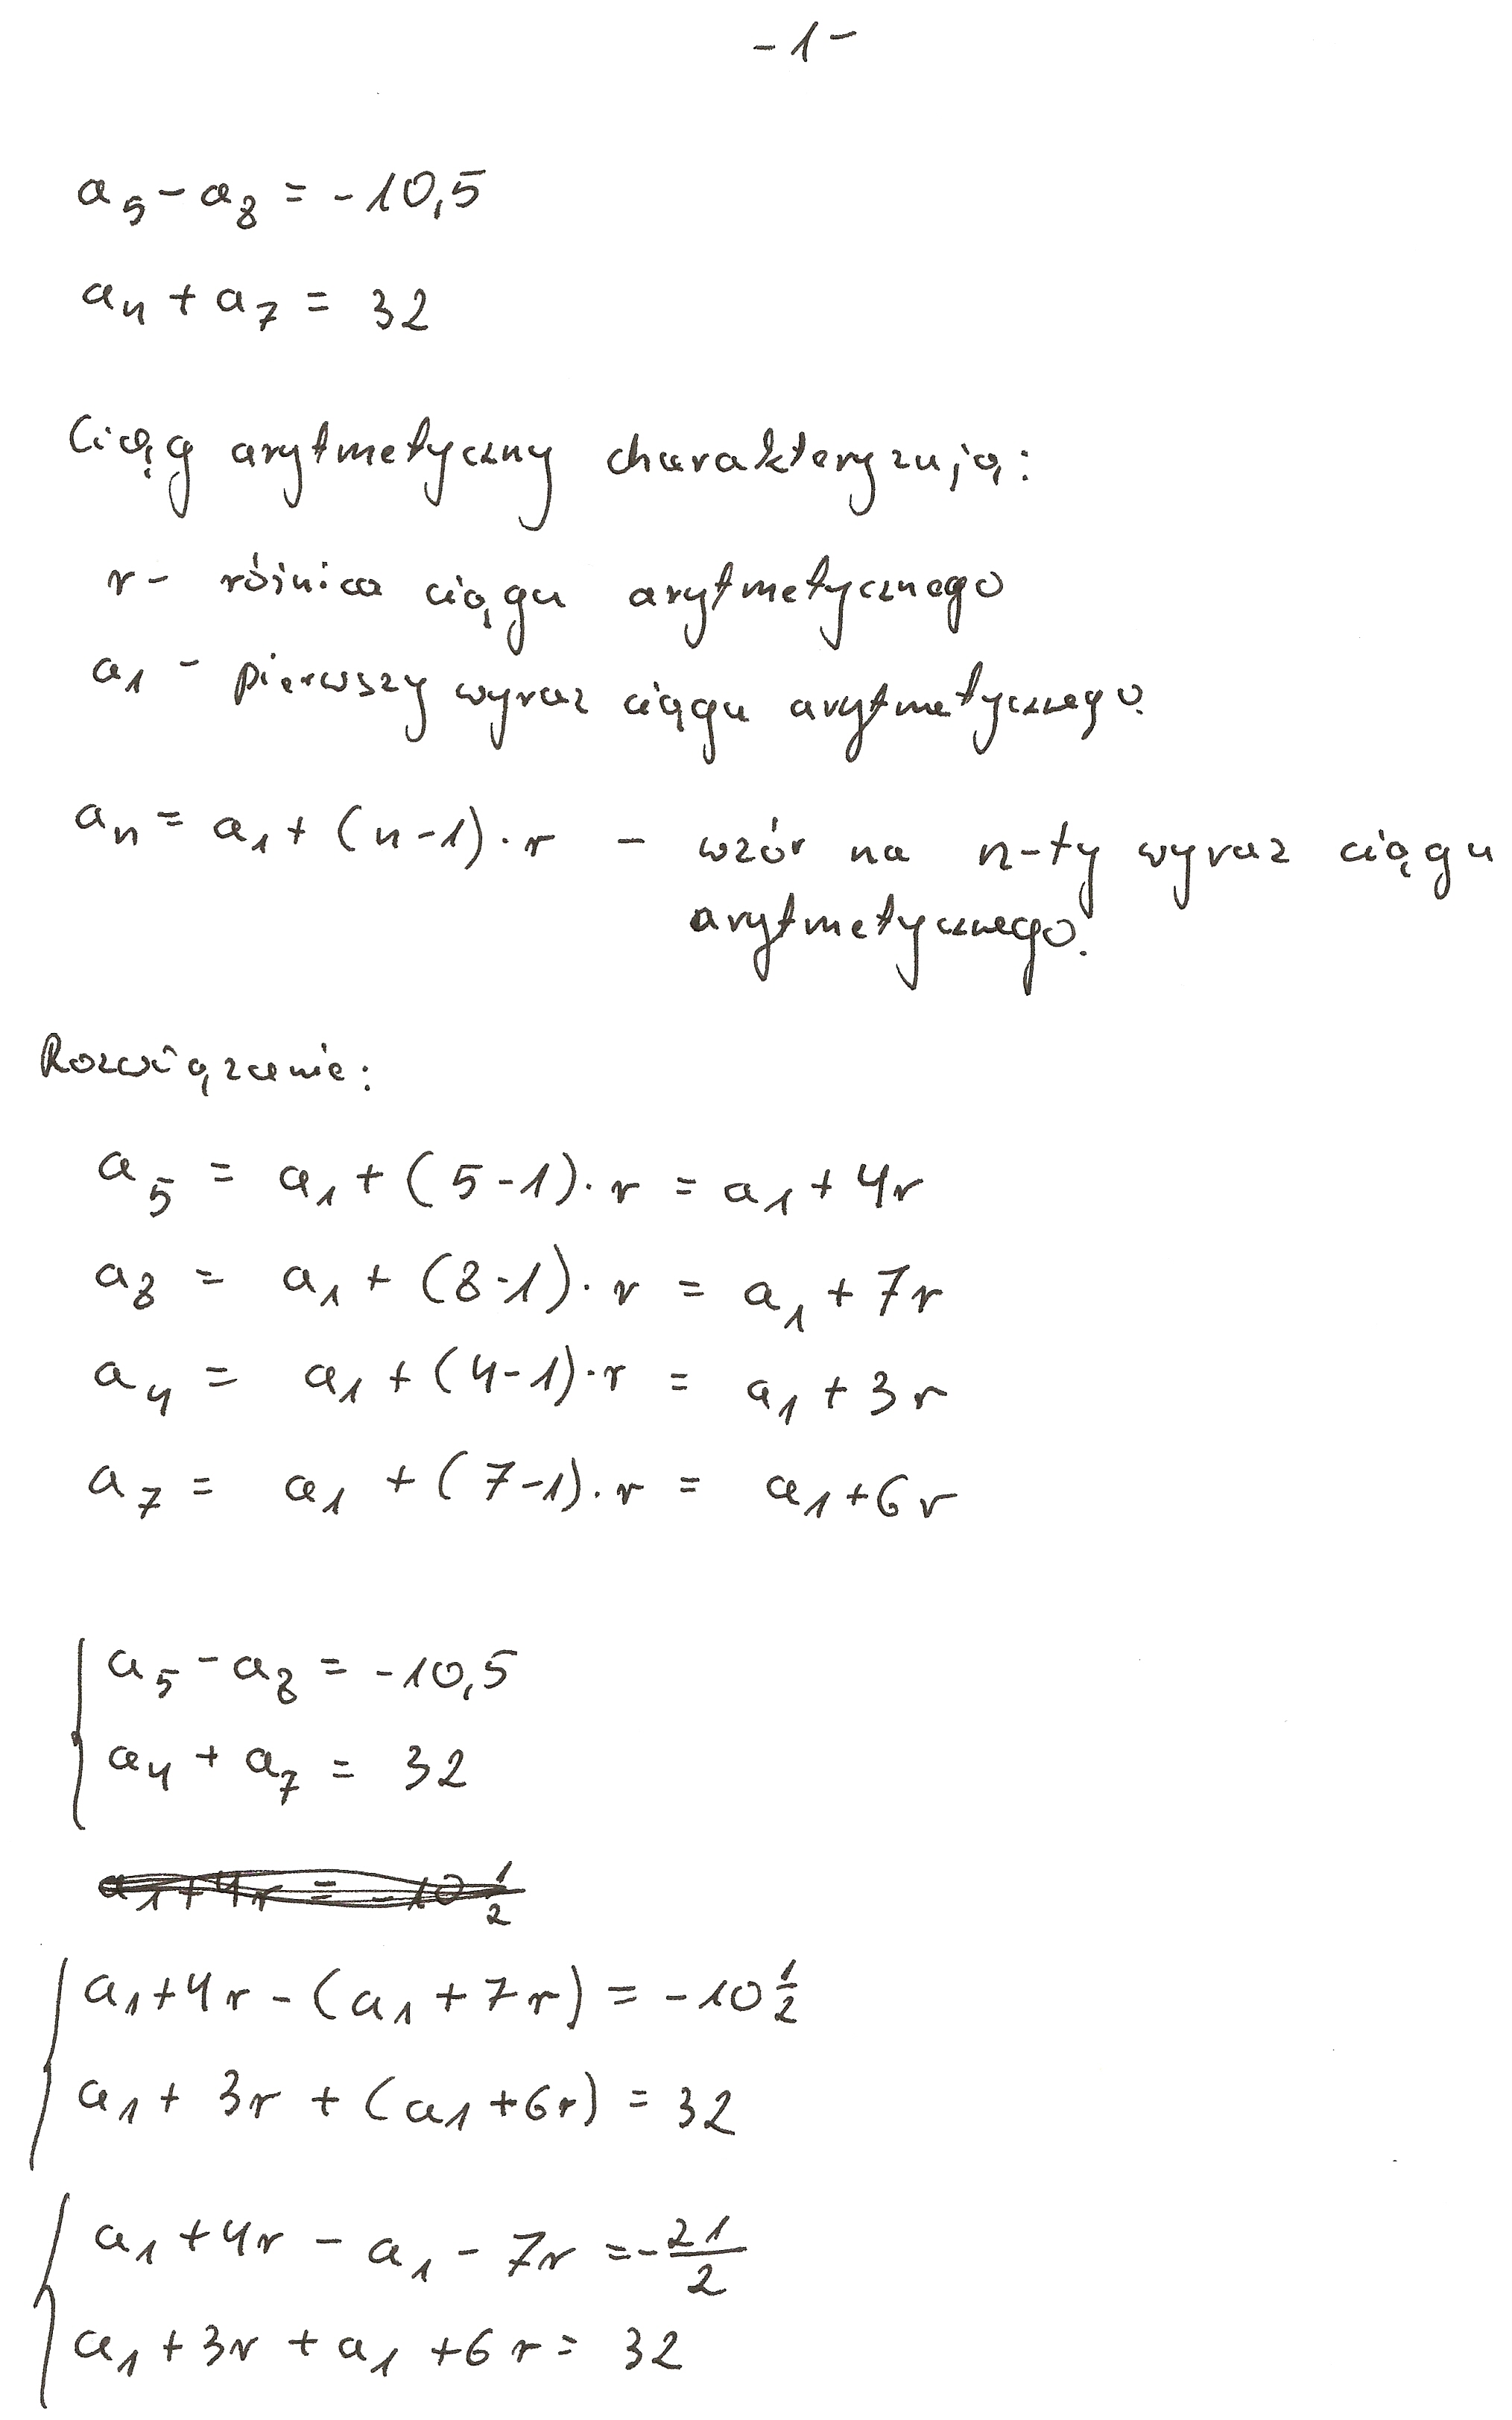 -1-
a₅ - a₈ = -10,5
a₄ + a₇ = 32
Ciąg arytmetyczny charakteryzują:
r - różnica ciągu arytmetycznego
a₁ - pierwszy wyraz ciągu arytmetycznego.
aₙ = a₁ + (n-1)·r - wzór na n-ty wyraz ciągu
arytmetycznego.
Rozwiązanie:
a₅ = a₁ + (5-1)·r = a₁ + 4r
a₈ = a₁ + (8-1)·r = a₁ + 7r
a₄ = a₁ + (4-1)·r = a₁ + 3r
a₇ = a₁ + (7-1)·r = a₁ + 6r
a₅ - a₈ = -10,5
a₄ + a₇ = 32
a₁ + 4r = -10 1/2
a₁ + 4r - (a₁ + 7r) = -10 1/2
a₁ + 3r + (a₁ + 6r) = 32
a₁ + 4r - a₁ - 7r = -21/2
a₁ + 3r + a₁ + 6r = 32